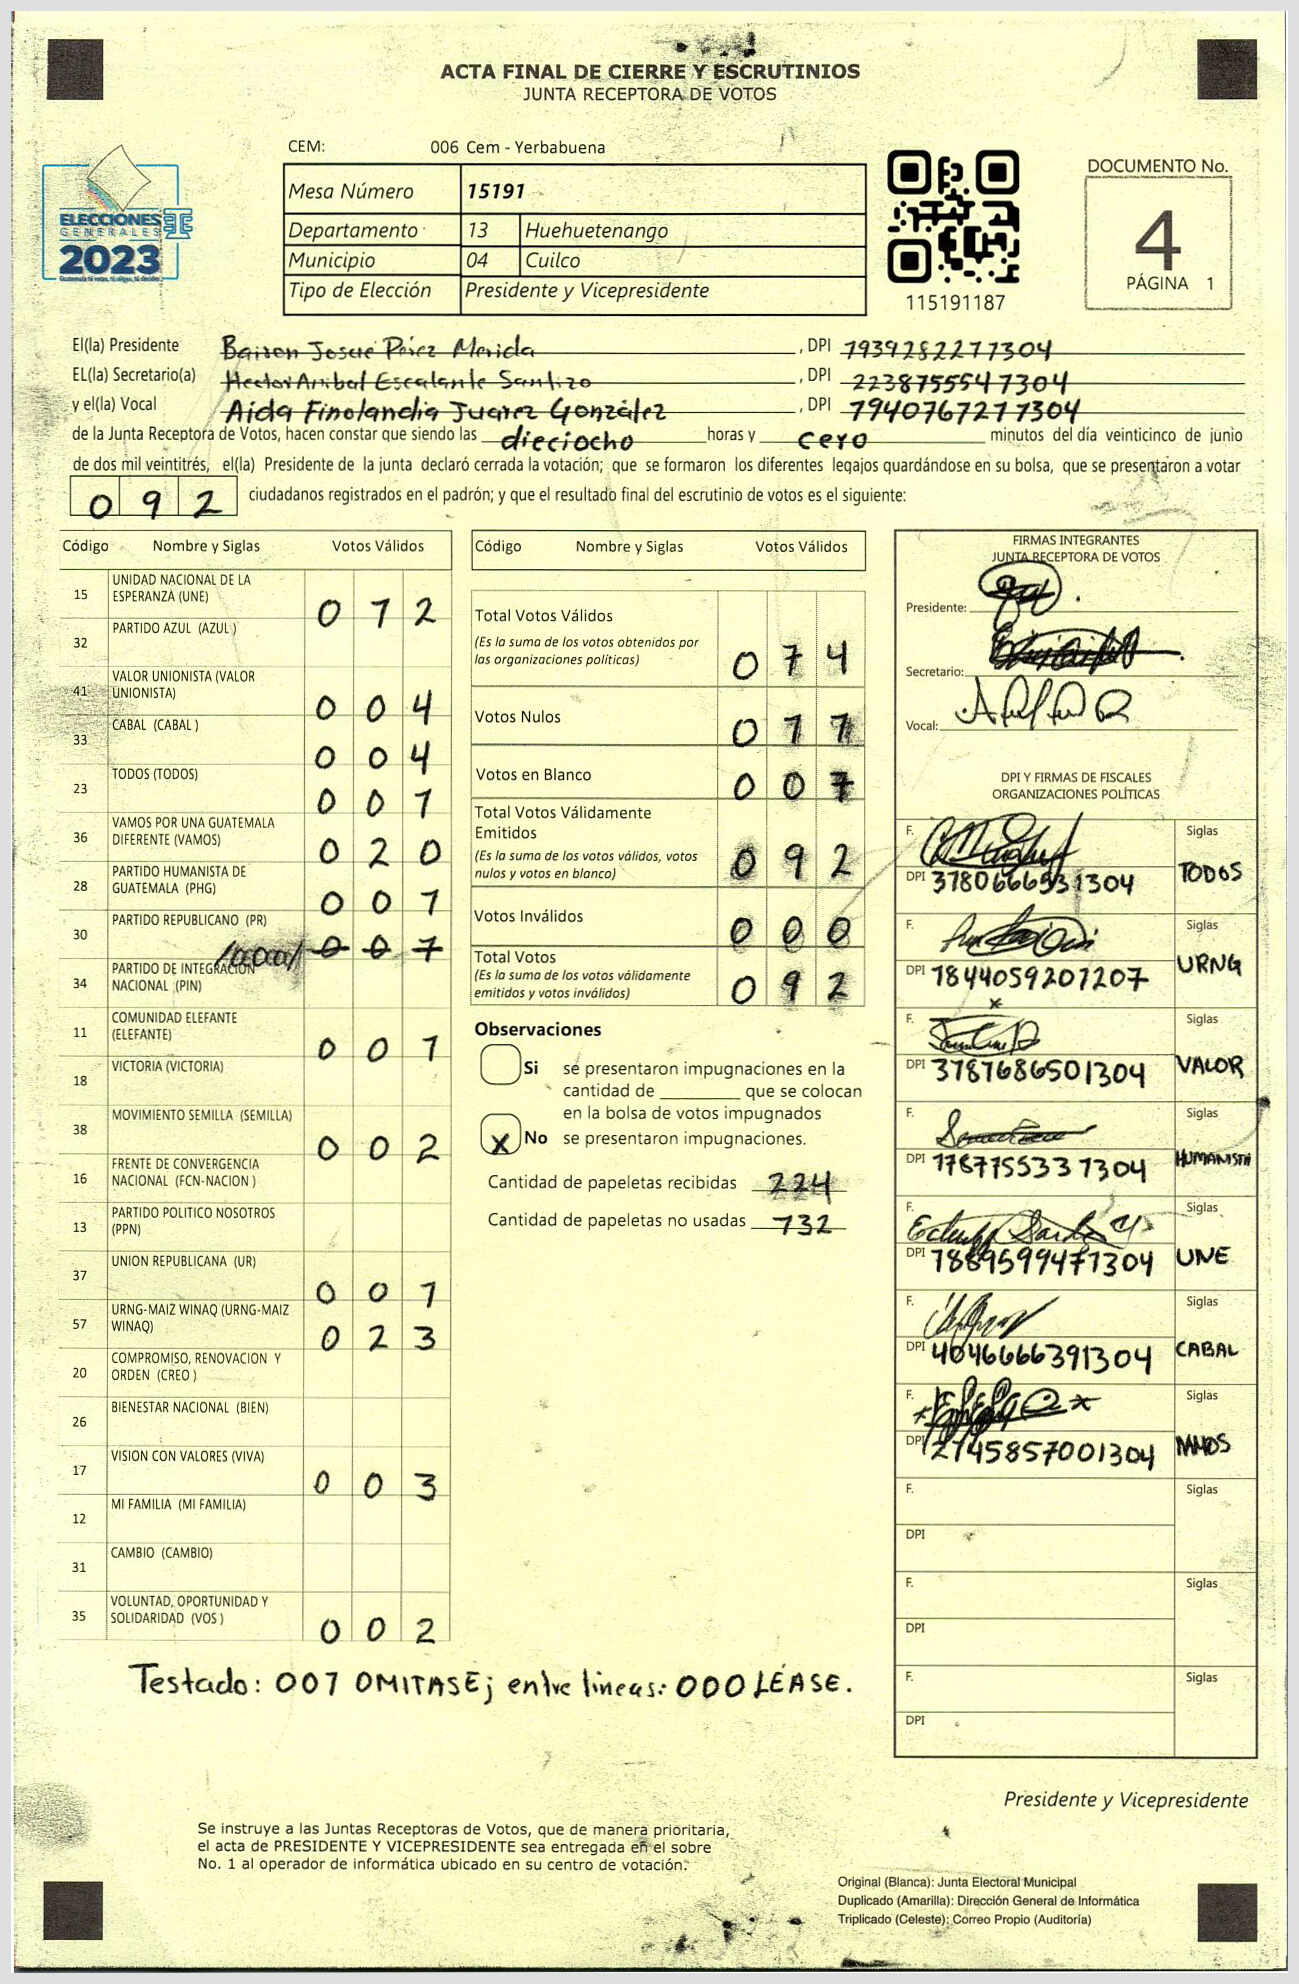 ACTA FINAL DE CIERRE Y ESCRUTINIOS
JUNTA RECEPTORA DE VOTOS
CEM: 006 Cem - Yerbabuena
Mesa Número 15191
Departamento 13 Huehuetenango
Municipio 04 Cuilco
Tipo de Elección Presidente y Vicepresidente
ELECCIONES
GENERALES
2023
115191187
DOCUMENTO No.
4
PÁGINA 1
El(la) Presidente Baison Josue Pérez Merida , DPI 1939282271304
EL(la) Secretario(a) Hector Anibal Escalante Santizo , DPI 2238755541304
y el(la) Vocal Aida Finolandia Juárez González , DPI 1940767271304
de la Junta Receptora de Votos, hacen constar que siendo las dieciocho horas y cero minutos del día veinticinco de junio
de dos mil veintitrés, el(la) Presidente de la junta declaró cerrada la votación; que se formaron los diferentes legajos guardándose en su bolsa, que se presentaron a votar
092 ciudadanos registrados en el padrón; y que el resultado final del escrutinio de votos es el siguiente:
Código Nombre y Siglas Votos Válidos
15 UNIDAD NACIONAL DE LA ESPERANZA (UNE) 012
32 PARTIDO AZUL (AZUL )
41 VALOR UNIONISTA (VALOR UNIONISTA) 004
33 CABAL (CABAL ) 004
23 TODOS (TODOS) 001
36 VAMOS POR UNA GUATEMALA DIFERENTE (VAMOS) 020
28 PARTIDO HUMANISTA DE GUATEMALA (PHG) 001
30 PARTIDO REPUBLICANO (PR) /000/ 001
34 PARTIDO DE INTEGRACION NACIONAL (PIN)
11 COMUNIDAD ELEFANTE (ELEFANTE) 001
18 VICTORIA (VICTORIA)
38 MOVIMIENTO SEMILLA (SEMILLA) 002
16 FRENTE DE CONVERGENCIA NACIONAL (FCN-NACION )
13 PARTIDO POLITICO NOSOTROS (PPN)
37 UNION REPUBLICANA (UR) 001
57 URNG-MAIZ WINAQ (URNG-MAIZ WINAQ) 023
20 COMPROMISO, RENOVACION Y ORDEN (CREO )
26 BIENESTAR NACIONAL (BIEN)
17 VISION CON VALORES (VIVA) 003
12 MI FAMILIA (MI FAMILIA)
31 CAMBIO (CAMBIO)
35 VOLUNTAD, OPORTUNIDAD Y SOLIDARIDAD (VOS ) 002
Código Nombre y Siglas Votos Válidos
Total Votos Válidos 074
(Es la suma de los votos obtenidos por
las organizaciones políticas)
Votos Nulos 011
Votos en Blanco 007
Total Votos Válidamente
Emitidos 092
(Es la suma de los votos válidos, votos
nulos y votos en blanco)
Votos Inválidos 000
Total Votos 092
(Es la suma de los votos válidamente
emitidos y votos inválidos)
Observaciones
Si se presentaron impugnaciones en la
cantidad de ________ que se colocan
en la bolsa de votos impugnados
X No se presentaron impugnaciones.
Cantidad de papeletas recibidas 224
Cantidad de papeletas no usadas 132
FIRMAS INTEGRANTES
JUNTA RECEPTORA DE VOTOS
Presidente:
Secretario:
Vocal:
DPI Y FIRMAS DE FISCALES
ORGANIZACIONES POLÍTICAS
F. Siglas
DPI 3780666531304 TODOS
F. Siglas
DPI 1844059201207 URNG
F. Siglas
DPI 3787686501304 VALOR
F. Siglas
DPI 1787755331304 HUMANISTA
F. Siglas
DPI 1889599471304 UNE
F. Siglas
DPI 4046666391304 CABAL
F. Siglas
DPI 2145857001304 VAMOS
F. Siglas
DPI
F. Siglas
DPI
F. Siglas
DPI
Testado: 001 OMITASE; entre lineas: 000 LÉASE.
Presidente y Vicepresidente
Se instruye a las Juntas Receptoras de Votos, que de manera prioritaria,
el acta de PRESIDENTE Y VICEPRESIDENTE sea entregada en el sobre
No. 1 al operador de informática ubicado en su centro de votación.
Original (Blanca): Junta Electoral Municipal
Duplicado (Amarilla): Dirección General de Informática
Triplicado (Celeste): Correo Propio (Auditoría)